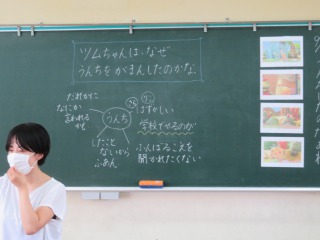 ツムちゃんは、なぜ
うんちを がまんしたのかな。
だれかに
なにか
言われる
かも
うんち
はずかしい
学校でするのが
したこと
ないから
ふあん
ふんばるこえを
聞かれたくない